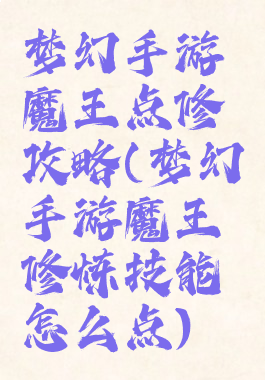 梦幻手游
魔王点修
攻略(梦幻
手游魔王
修炼技能
怎么点)